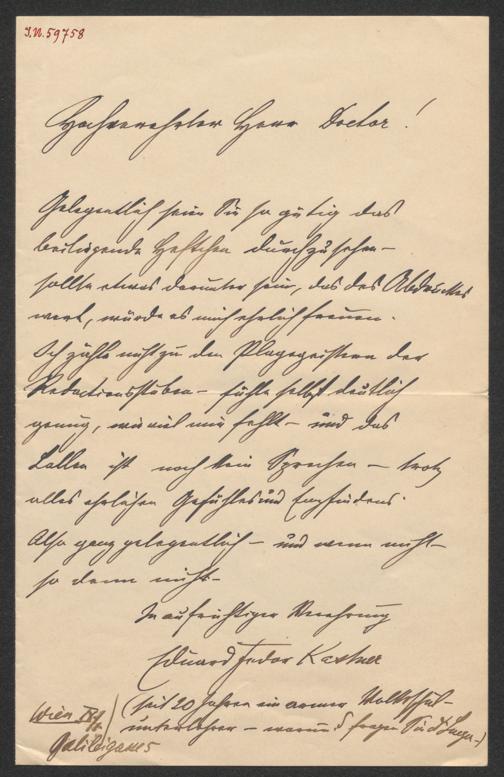 I.N. 59758
Hochverehrter Herr Doctor!
Gelegentlich seien Sie so gütig das
beiliegende Heftchen durchzusehen –
sollte etwas darunter sein, das des Abdruckes
wert, würde es mich ehrlich freuen.
Ich zähle nicht zu den Plagegeistern der
Redactionsstuben – fühle selbst deutlich
genug, wie viel mir fehlt – und das
Lallen ist noch kein Sprechen – trotz
alles ehrlichen Gefühles und Empfindens.
Also ganz gelegentlich – und wenn nicht –
so denn nicht –
In aufrichtiger Verehrung
Eduard Fedor Kastner
(seit 20 Jahren ein armer Volksschul-
unterlehrer – warum? fragen Sie
Wien
Galileigasse 5